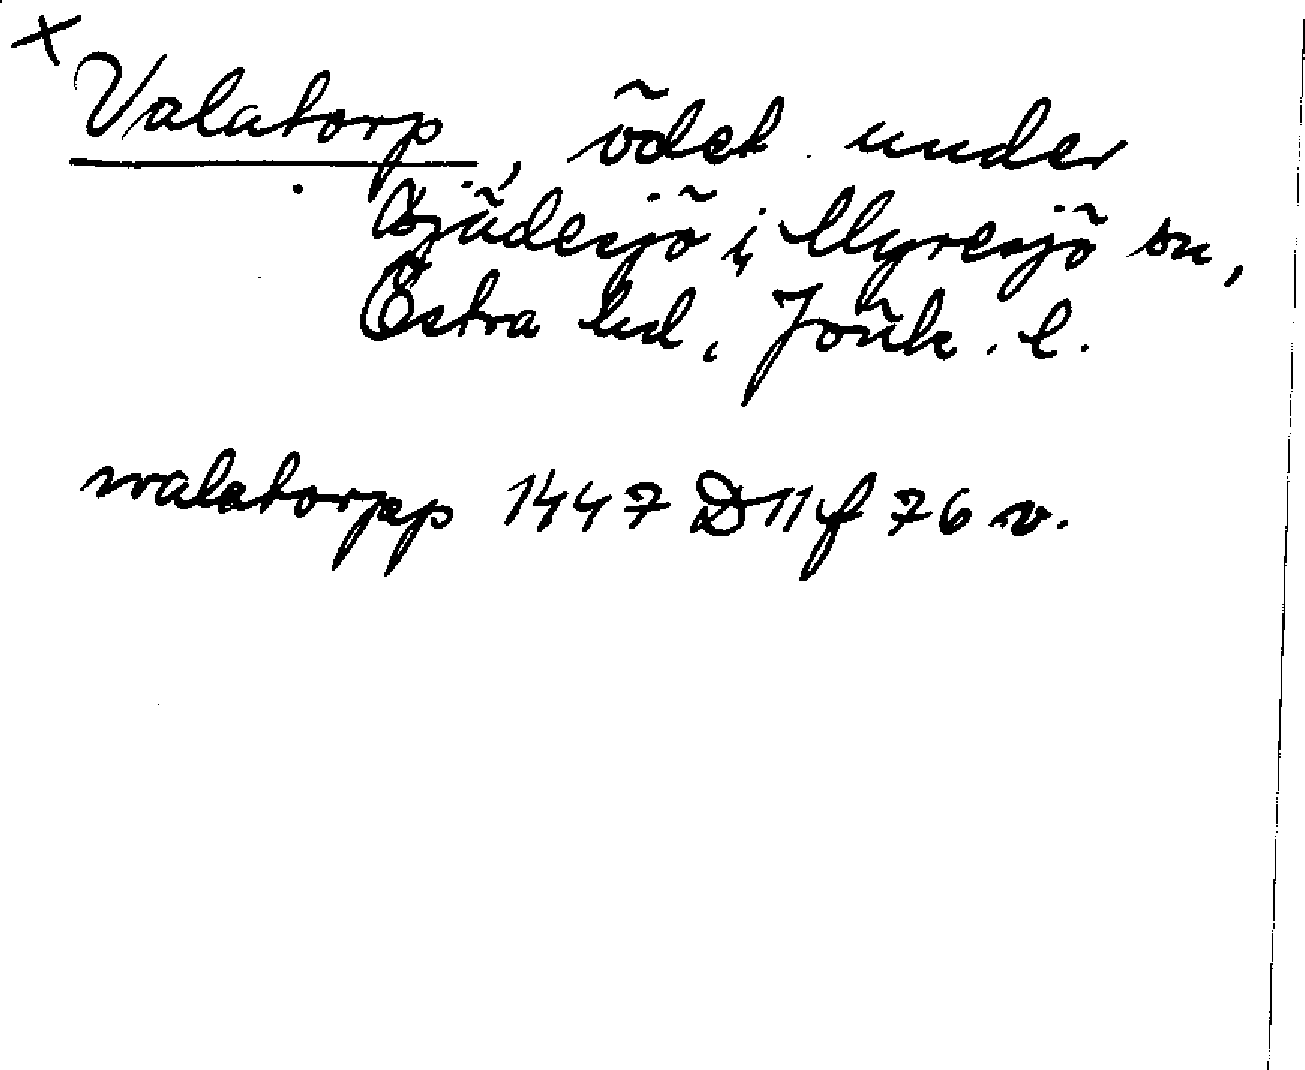 x
Valatorp, ödet under
Bjädesjö i Myresjö sn,
Östra hd, Jönk. l.
walatorpp 1447 D 11 f 76 v.